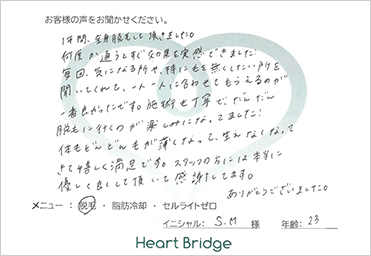 お客様の声をお聞かせください。
1年間、全身脱毛して頂きました。
何度か通うとすぐ効果を実感できました!
毎回、気になる所や、特に毛を無くしたい所を
聞いてくれて、一人一人に合わせてもらえるのが
一番良かったです。施術も丁寧で、だんだん
脱毛に行くのが楽しみになってました!
体もどんどん毛が薄くなって、生えなくなって
きて嬉しく満足です。スタッフの方には本当に
優しく良くして頂いて感謝してます。
ありがとうございました。
メニュー:脱毛・脂肪冷却・セルライトゼロ
イニシャル:S.M 様 年齢:23
Heart Bridge